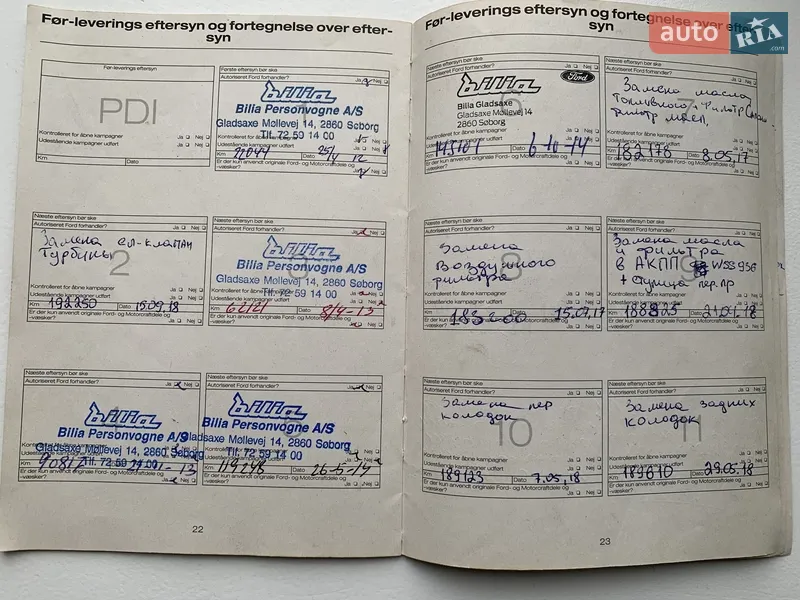 Før-leverings eftersyn og fortegnelse over efter-
syn
Før-leverings eftersyn
PDI
Kontrolleret for åbne kampagner Ja Nej
Udestående kampagner udført Ja Nej
Km Dato
Er der kun anvendt originale Ford- og Motorcraftdele og
-væsker? Ja Nej
Første eftersyn bør ske
Autoriseret Ford forhandler? Ja Nej
billia
Billia Personvogne A/S
Gladsaxe Møllevej 14, 2860 Søborg
Tlf. 72 59 14 00
Kontrolleret for åbne kampagner Ja Nej
Udestående kampagner udført Ja Nej
Km 22044 Dato 25/4 12
Er der kun anvendt originale Ford- og Motorcraftdele og
-væsker? Ja Nej
Næste eftersyn bør ske
Autoriseret Ford forhandler? Ja Nej
Замена эл-клапан
Турбины
2
Kontrolleret for åbne kampagner Ja Nej
Udestående kampagner udført Ja Nej
Km 192250 Dato 15.09.18
Er der kun anvendt originale Ford- og Motorcraftdele og
-væsker? Ja Nej
Næste eftersyn bør ske
Autoriseret Ford forhandler? Ja Nej
billia
Billia Personvogne A/S
Gladsaxe Møllevej 14, 2860 Søborg
Tlf. 72 59 14 00
Kontrolleret for åbne kampagner Ja Nej
Udestående kampagner udført Ja Nej
Km 62121 Dato 8/4-13
Er der kun anvendt originale Ford- og Motorcraftdele og
-væsker? Ja Nej
Næste eftersyn bør ske
Autoriseret Ford forhandler? Ja Nej
billia
Billia Personvogne A/S
Gladsaxe Møllevej 14, 2860 Søborg
Tlf. 72 59 14 00
Er der kun anvendt originale Ford- og Motorcraftdele og
-væsker? Ja Nej
Næste eftersyn bør ske
Autoriseret Ford forhandler? Ja Nej
billia
Billia Personvogne A/S
Gladsaxe Møllevej 14, 2860 Søborg
Tlf. 72 59 14 00
Km 119248 Dato 26-5-14
Er der kun anvendt originale Ford- og Motorcraftdele og
-væsker? Ja Nej
22
Før-leverings eftersyn og fortegnelse over efter-
syn
auto RIA.com
Autoriseret Ford forhandler? Ja Nej
billia Ford
Billia Gladsaxe
Gladsaxe Møllevej 14
2860 Søborg
Kontrolleret for åbne kampagner Ja Nej
Udestående kampagner udført Ja Nej
Dato 6-10-14
Er der kun anvendt originale Ford- og Motorcraftdele og
-væsker? Ja Nej
Замена масла
Топливного и Фильтр
7
Kontrolleret for åbne kampagner Ja Nej
Udestående kampagner udført Ja Nej
Km 182176 Dato 8.05.17
Er der kun anvendt originale Ford- og Motorcraftdele og
-væsker? Ja Nej
Næste eftersyn bør ske
Autoriseret Ford forhandler? Ja Nej
Замена
Воздушного
фильтра
8
Kontrolleret for åbne kampagner Ja Nej
Udestående kampagner udført Ja Nej
Km 183200 Dato 15.07.17
Er der kun anvendt originale Ford- og Motorcraftdele og
-væsker? Ja Nej
Næste eftersyn bør ske
Autoriseret Ford forhandler? Ja Nej
Замена масла
и фильтра
в АКПП WSS 956
+ ступица пер.пр
9
Udestående kampagner udført Ja Nej
Km 188825 Dato 21.01.18
Er der kun anvendt originale Ford- og Motorcraftdele og
-væsker? Ja Nej
Næste eftersyn bør ske
Autoriseret Ford forhandler? Ja Nej
Замена пер
колодок
10
Kontrolleret for åbne kampagner Ja Nej
Udestående kampagner udført Ja Nej
Km 189123 Dato 7.05.18
Er der kun anvendt originale Ford- og Motorcraftdele og
-væsker? Ja Nej
Næste eftersyn bør ske
Autoriseret Ford forhandler? Ja Nej
Замена задних
колодок
11
Kontrolleret for åbne kampagner Ja Nej
Udestående kampagner udført Ja Nej
Km 189610 Dato 29.05.18
Er der kun anvendt originale Ford- og Motorcraftdele og
-væsker? Ja Nej
23